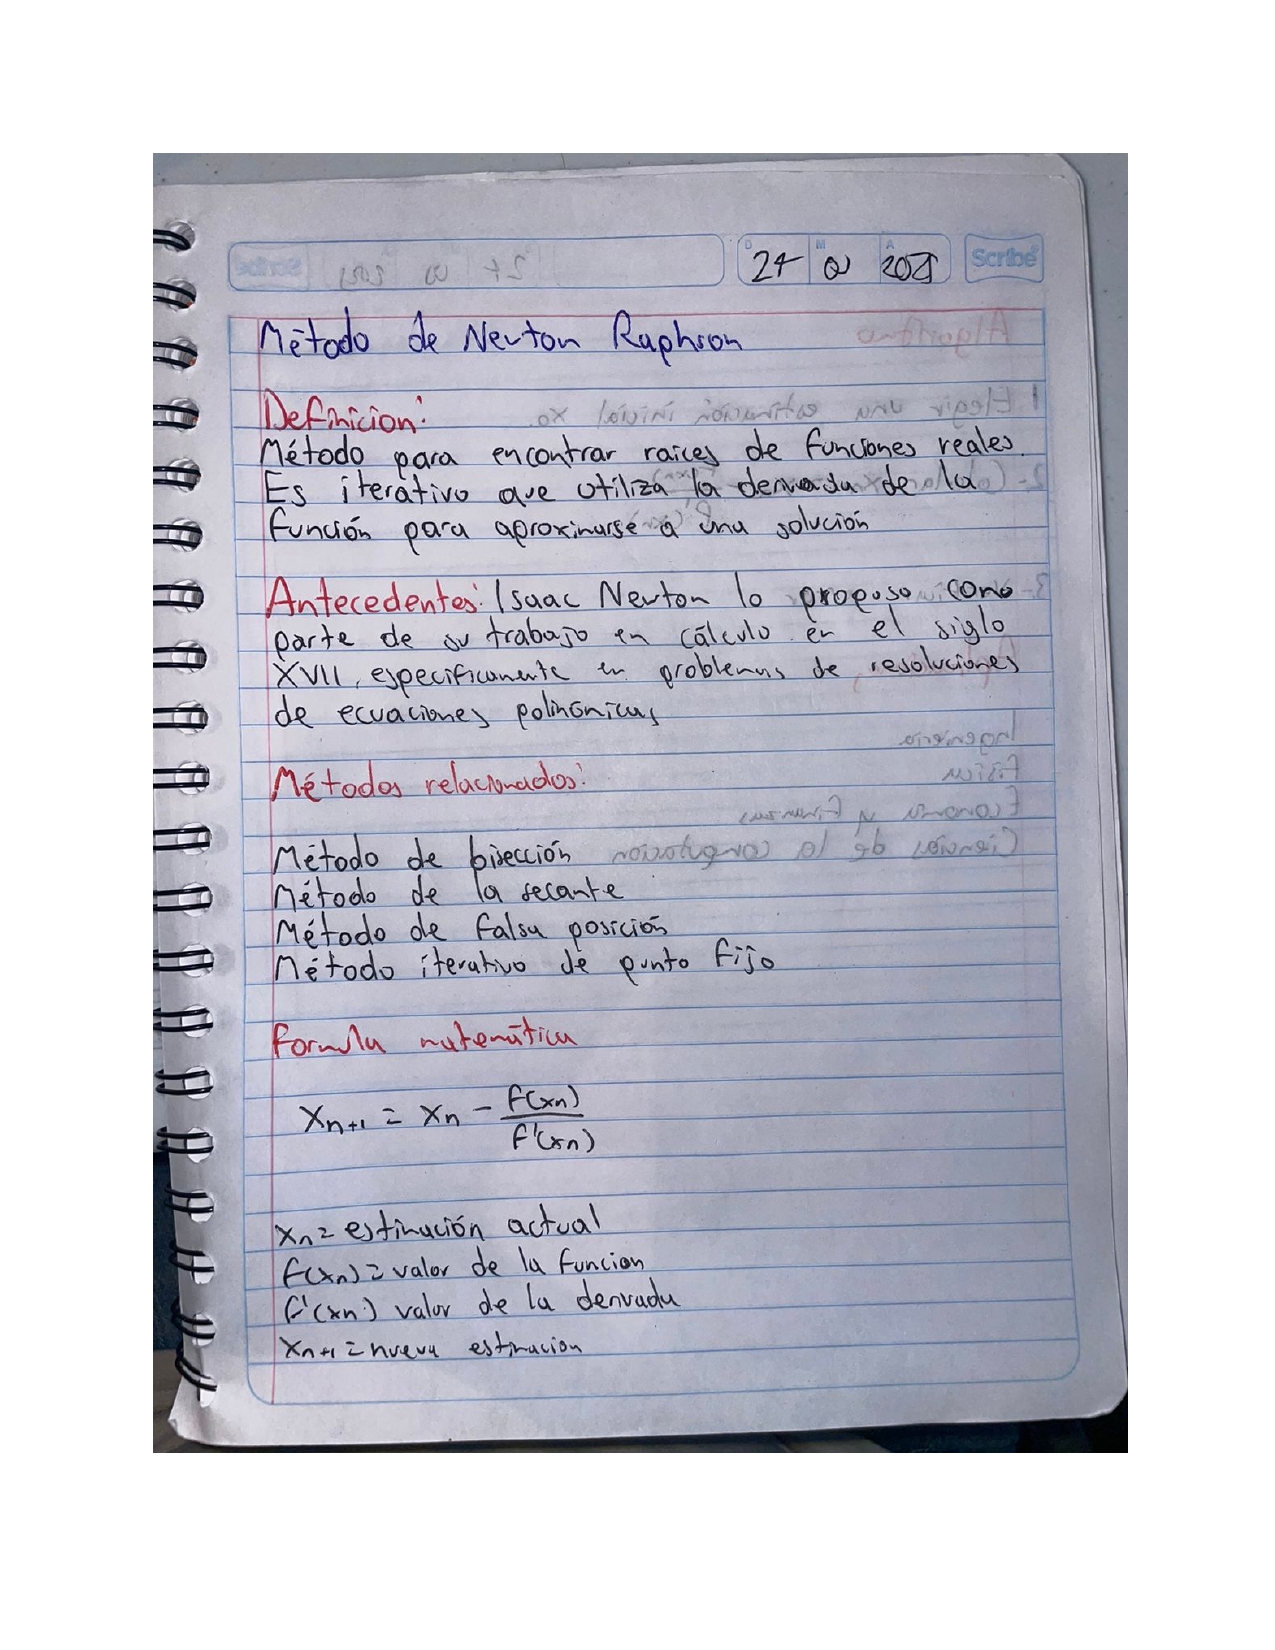 D M A
24 02 2025 Scribe
Método de Newton Raphson
Definicion:
Método para encontrar raíces de funciones reales.
Es iterativo que utiliza la derivada de la
función para aproximarse a una solución
Antecedentes: Isaac Newton lo propuso como
parte de su trabajo en cálculo en el siglo
XVII, específicamente en problemas de resoluciones
de ecuaciones polinómicas
Métodos relacionados:
Método de bisección
Método de la secante
Método de falsa posición
Método iterativo de punto fijo
Formula matemática
Xn+1 = Xn - f(xn)/f'(xn)
xn = estimación actual
f(xn) = valor de la funcion
f'(xn) valor de la derivada
xn+1 = nueva estimacion